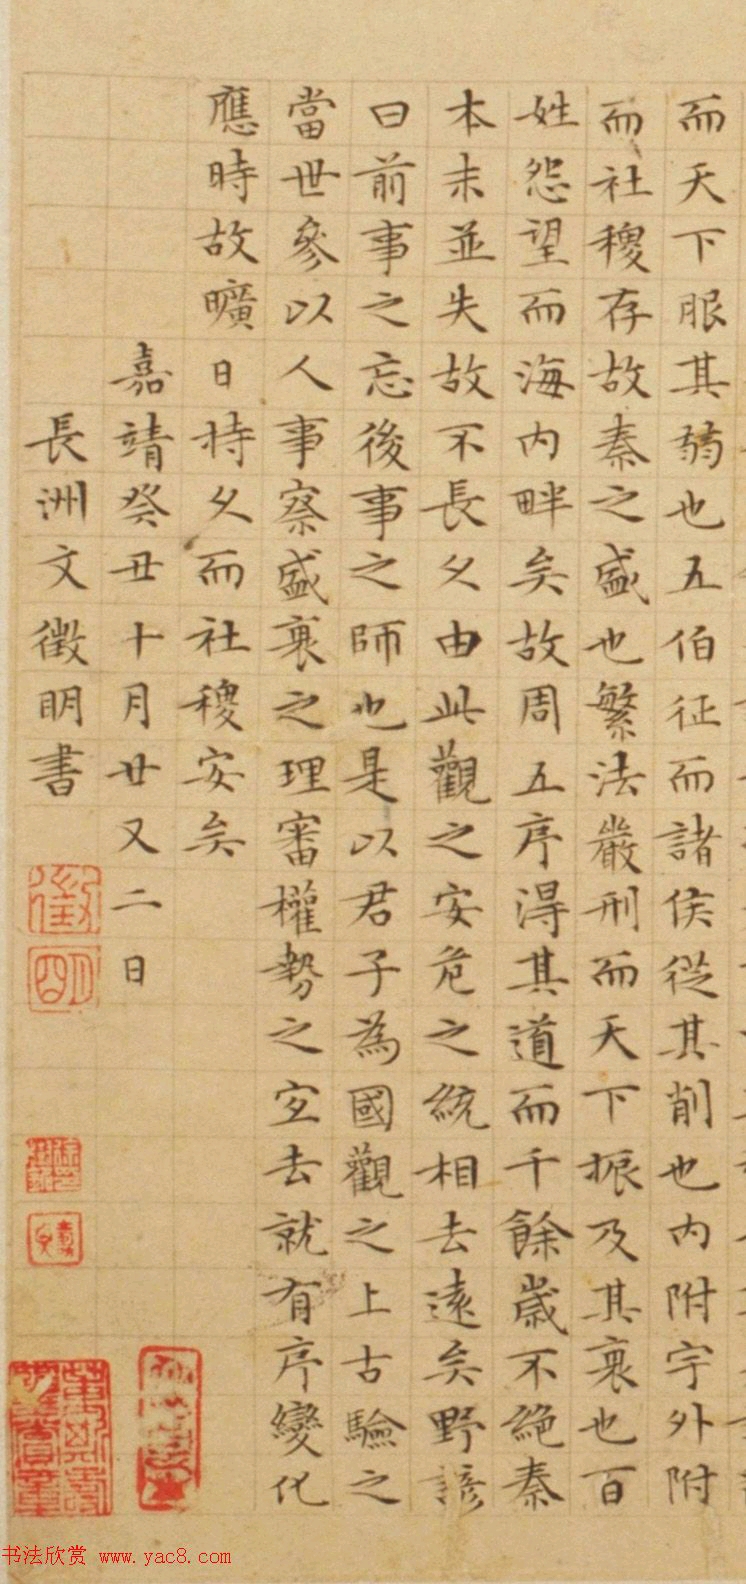 而天下服其弱也五伯征而諸侯從其削也内附宇外附
而社稷存故秦之盛也繁法嚴刑而天下振及其衰也百
姓怨望而海内畔矣故周五序得其道而千餘歲不絶秦
本末並失故不長久由此觀之安危之統相去遠矣野諺
曰前事之忘後事之師也是以君子為國觀之上古驗之
當世參以人事察盛衰之理審權勢之宜去就有序變化
應時故曠日持久而社稷安矣
嘉靖癸丑十月廿又二日
長洲文徵明書
徵
明
书法欣赏 www.yac8.com